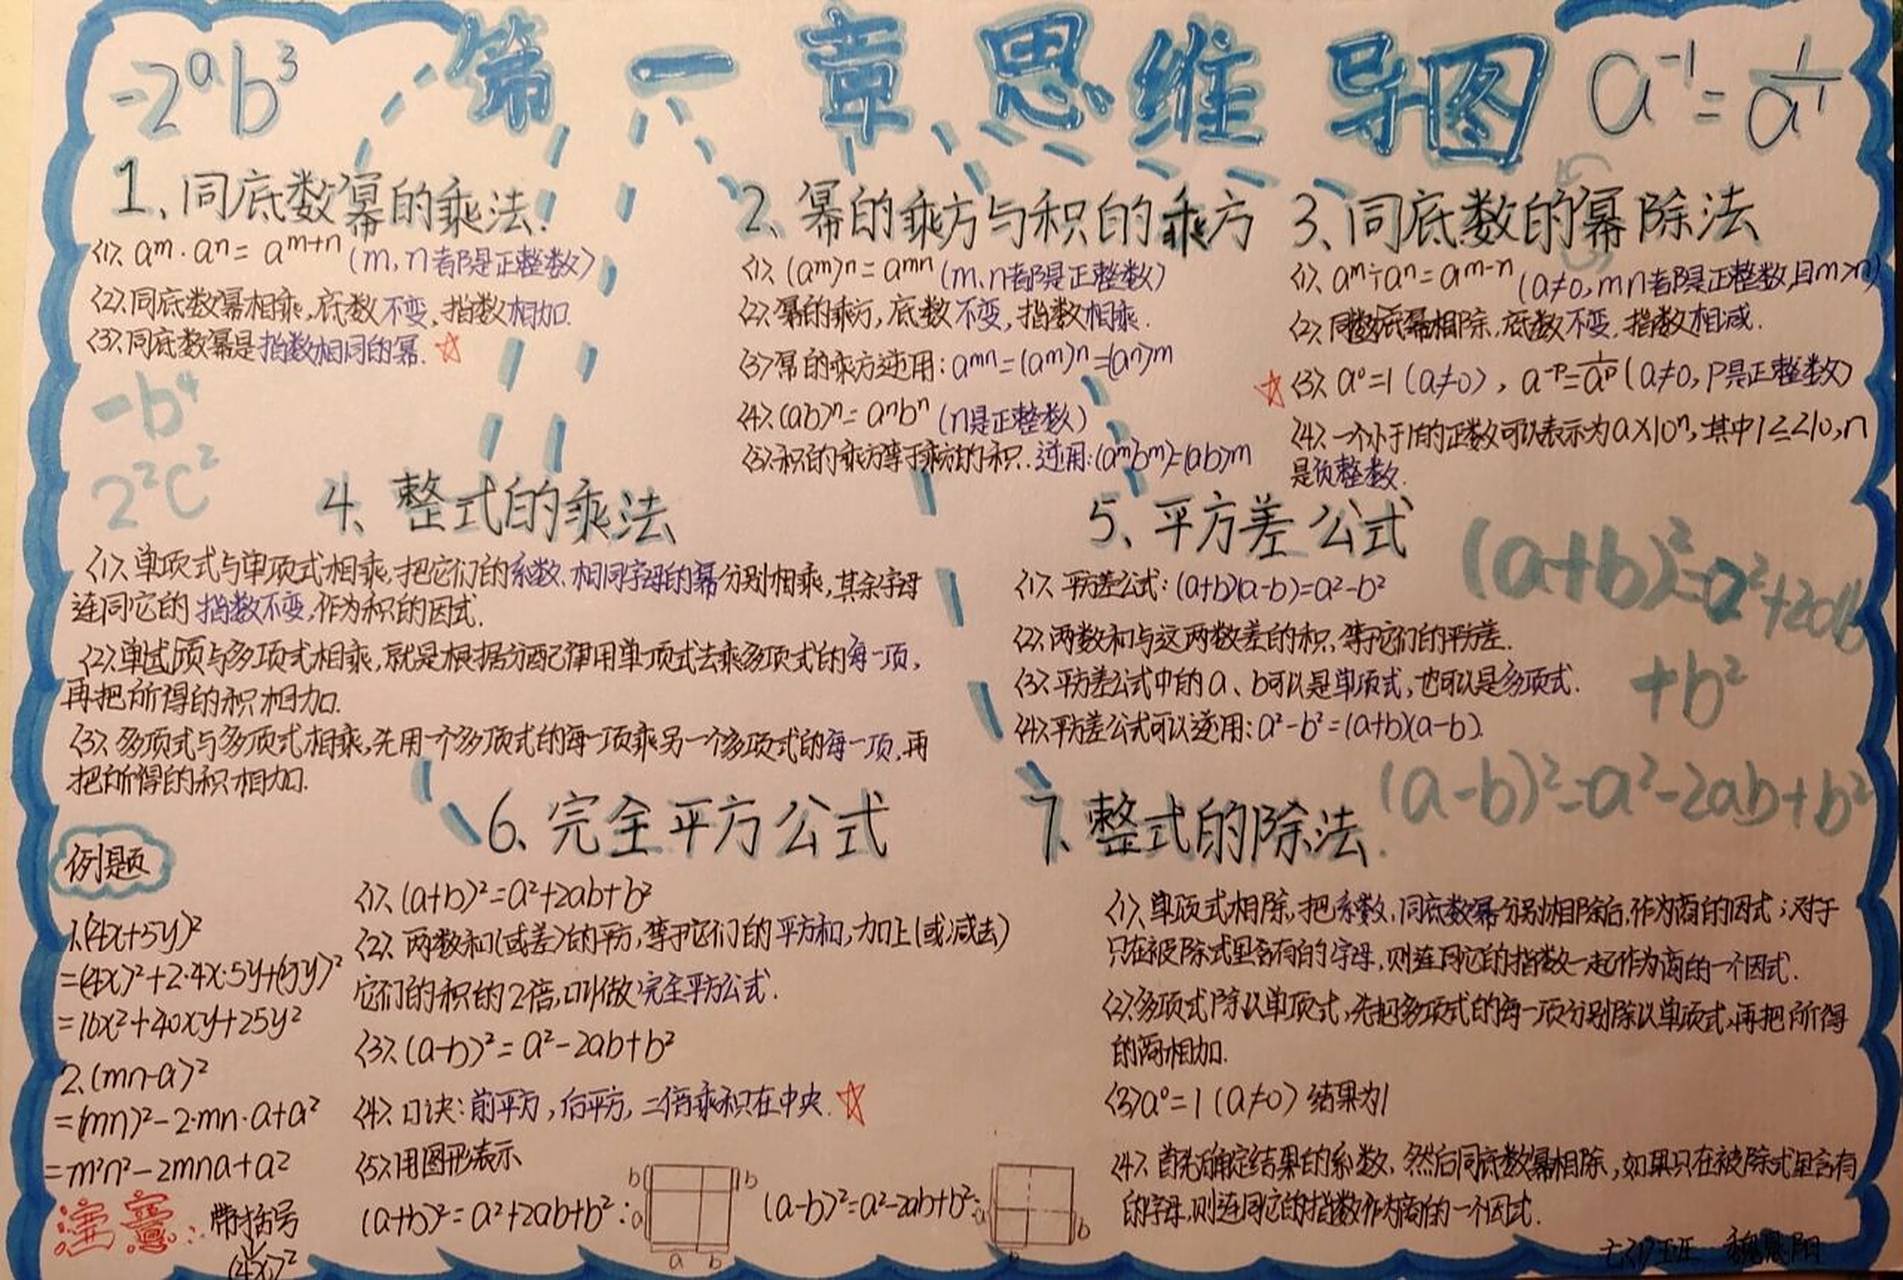 -2ᵃb³
第一章思维导图
a⁻¹=1/a¹
1、同底数幂的乘法:
⟨1⟩、aᵐ·aⁿ=aᵐ⁺ⁿ(m,n都是正整数)
⟨2⟩、同底数幂相乘,底数不变,指数相加.
⟨3⟩、同底数幂是指数相同的幂.☆
-b⁴
2²c²
2、幂的乘方与积的乘方
⟨1⟩、(aᵐ)ⁿ=aᵐⁿ(m、n都是正整数)
⟨2⟩、幂的乘方,底数不变,指数相乘.
⟨3⟩幂的乘方逆用:aᵐⁿ=(aᵐ)ⁿ=(aⁿ)ᵐ
⟨4⟩、(ab)ⁿ=aⁿbⁿ(n是正整数)
⟨5⟩、积的乘方等于乘方的积.逆用:(aᵐbᵐ)=(ab)ᵐ
3、同底数的幂除法
⟨1⟩、aᵐ÷aⁿ=aᵐ⁻ⁿ(a≠0,mn都是正整数,且m>n)
⟨2⟩、同数底幂相除,底数不变,指数相减.
☆⟨3⟩、a⁰=1(a≠0),a⁻ᵖ=1/aᵖ(a≠0,P是正整数)
⟨4⟩、一个小于1的正数可以表示为a×10ⁿ,其中1≤<10,n
是负整数.
4、整式的乘法
⟨1⟩、单项式与单项式相乘,把它们的系数、相同字母的幂分别相乘,其余字母
连同它的指数不变,作为积的因式.
⟨2⟩、单式项与多项式相乘,就是根据分配律用单项式去乘多项式的每一项,
再把所得的积相加.
⟨3⟩、多项式与多项式相乘,先用一个多项式的每一项乘另一个多项式的每一项,再
把所得的积相加.
5、平方差公式
⟨1⟩、平方差公式:(a+b)(a-b)=a²-b²
⟨2⟩、两数和与这两数差的积,等于它们的平方差.
⟨3⟩、平方差公式中的a、b可以是单项式,也可以是多项式.
⟨4⟩、平方差公式可以逆用:a²-b²=(a+b)(a-b).
(a+b)²=a²+2ab
+b²
(a-b)²=a²-2ab+b²
例题
1、(4x+5y)²
=(4x)²+2·4x·5y+(5y)²
=16x²+40xy+25y²
2、(mn-a)²
=(mn)²-2·mn·a+a²
=m²n²-2mna+a²
注意:带括号
(4x)²
6、完全平方公式
⟨1⟩、(a+b)²=a²+2ab+b²
⟨2⟩、两数和(或差)的平方,等于它们的平方和,加上(或减去)
它们的积的2倍,叫做完全平方公式.
⟨3⟩、(a-b)²=a²-2ab+b²
⟨4⟩、口诀:前平方,后平方,二倍乘积在中央.☆
⟨5⟩、用图形表示
(a+b)²=a²+2ab+b²:
b b
a
a b
(a-b)²=a²-2ab+b²:
a b
7、整式的除法.
⟨1⟩、单项式相除,把系数、同底数幂分别相除后,作为商的因式;对于
只在被除式里含有的字母,则连同它的指数一起作为商的一个因式.
⟨2⟩、多项式除以单项式,先把多项式的每一项分别除以单项式,再把所得
的商相加.
⟨3⟩a⁰=1(a≠0)结果为1
⟨4⟩、首先确定结果的系数、然后同底数幂相除,如果只在被除式里含有
的字母,则连同它的指数作为商的一个因式.
魏晨阳